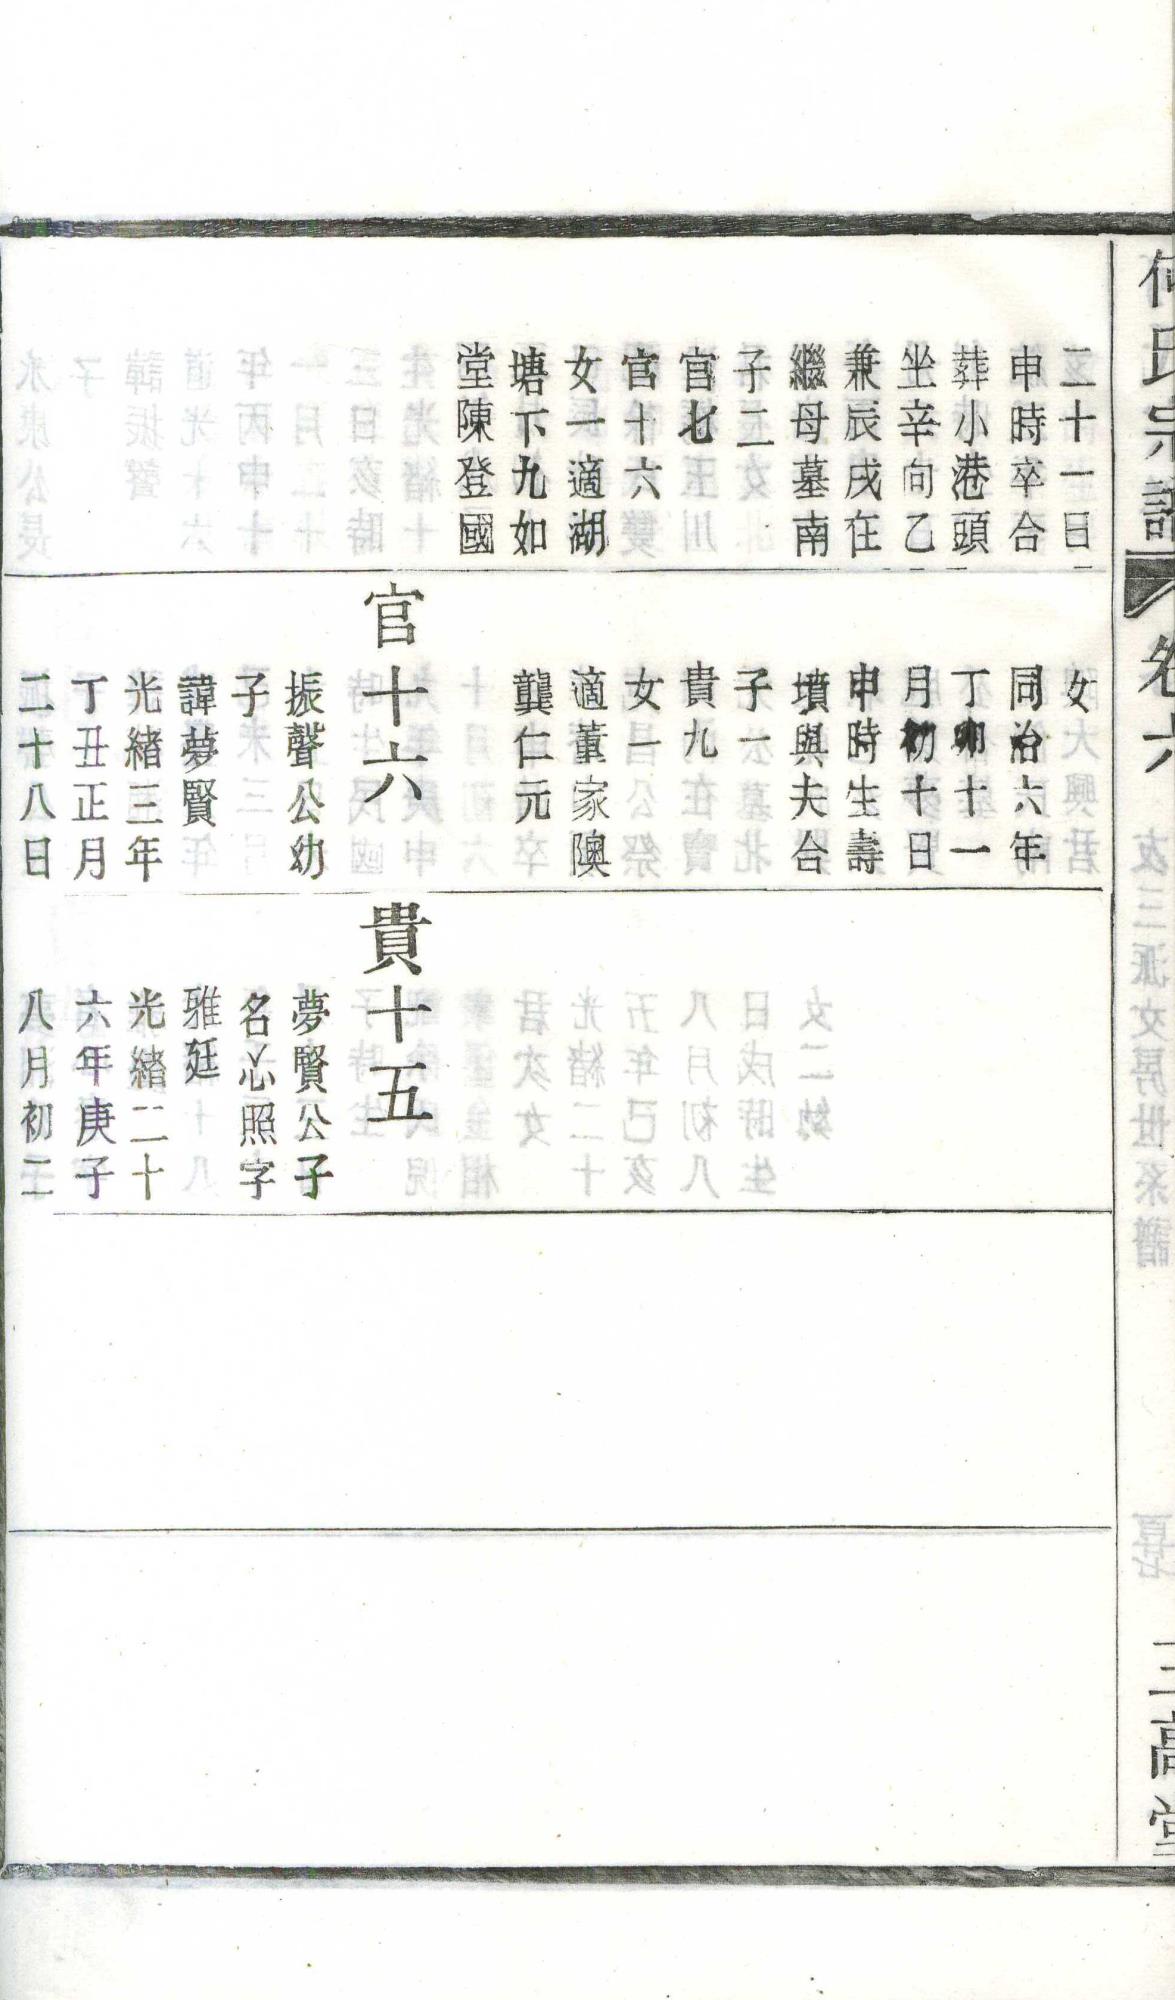 何氏宗譜
卷六
三高堂
二十一日
申時卒合
葬小港頭
坐辛向乙
兼辰戌在
繼母墓南
子二
官七
官十六
女一適湖
塘下九如
堂陳登國
女
同治六年
丁卯十一
月初十日
申時生壽
墳與夫合
子一
貴九
女一
適董家隩
龔仁元
官十六
振聲公幼
子
諱夢賢
光緒三年
丁丑正月
二十八日
貴十五
夢賢公子
名心照字
雅廷
光緒二十
六年庚子
八月初二